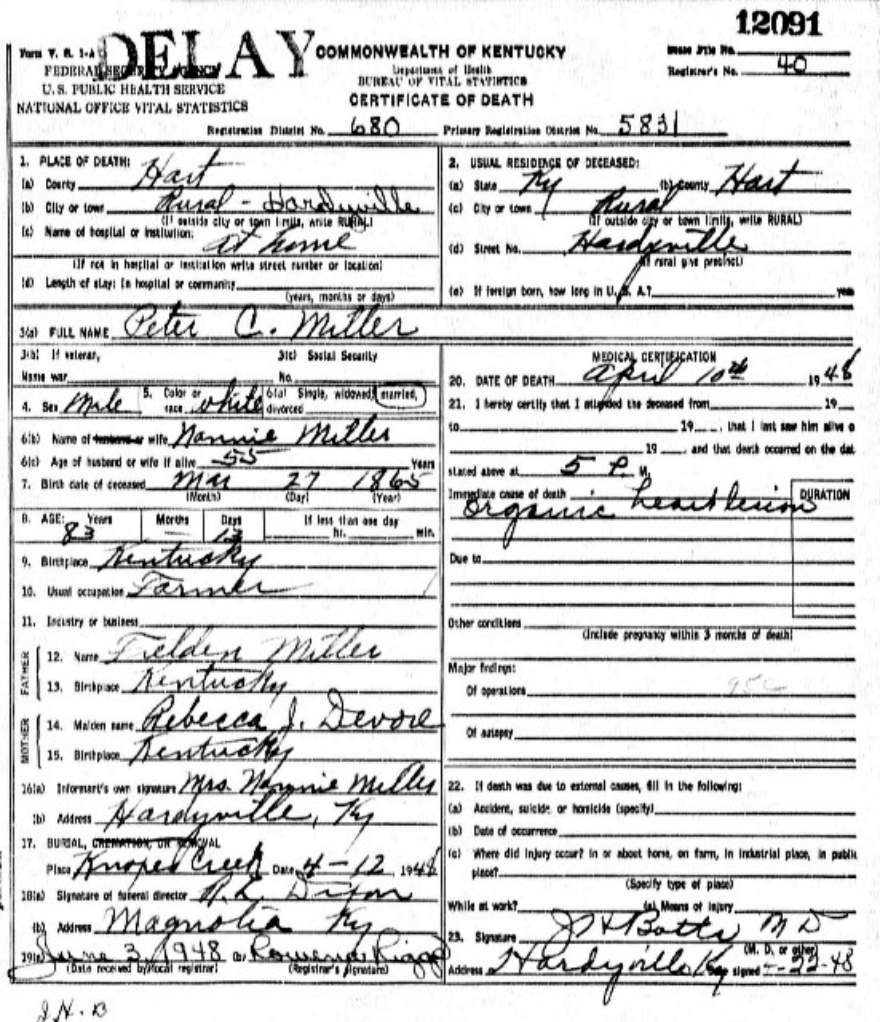 12091
DELAY
Form V. S. 1-A
COMMONWEALTH OF KENTUCKY
State File No.
FEDERAL SECURITY AGENCY
Department of Health
Registrar's No. 40
U. S. PUBLIC HEALTH SERVICE
BUREAU OF VITAL STATISTICS
NATIONAL OFFICE VITAL STATISTICS
CERTIFICATE OF DEATH
Registration District No. 680 Primary Registration District No. 5831
1. PLACE OF DEATH:
(a) County Hart
(b) City or town Rural - Hardyville
(If outside city or town limits, write RURAL)
(c) Name of hospital or institution:
at home
(If not in hospital or institution write street number or location)
(d) Length of stay: In hospital or community
(years, months or days)
2. USUAL RESIDENCE OF DECEASED:
(a) State Ky (b) county Hart
(c) City or town Rural
(If outside city or town limits, write RURAL)
(d) Street No. Hardyville
(If rural give precinct)
(e) If foreign born, how long in U. S. A.? years
3(a) FULL NAME Peter C. Miller
3(b) If veteran, 3(c) Social Security
Name war No.
4. Sex Male 5. Color or race white 6(a) Single, widowed, married, divorced
6(b) Name of husband or wife Nannie Miller
6(c) Age of husband or wife if alive 55 Years
7. Birth date of deceased Mar 27 1865
(Month) (Day) (Year)
8. AGE: Years Months Days If less than one day
83 — 13 hr. min.
9. Birthplace Kentucky
10. Usual occupation Farmer
11. Industry or business
FATHER
12. Name Fielden Miller
13. Birthplace Kentucky
MOTHER
14. Maiden name Rebecca J. Devore
15. Birthplace Kentucky
16(a) Informant's own signature Mrs. Nannie Miller
(b) Address Hardyville, Ky
17. BURIAL, CREMATION, OR REMOVAL
Place Knopes Creek Date 4-12, 1948
18(a) Signature of funeral director R. E. Dixon
(b) Address Magnolia Ky
19(a) June 3, 1948 (b) Rowena Riggs
(Date received by local registrar) (Registrar's signature)
MEDICAL CERTIFICATION
20. DATE OF DEATH April 10th 1948
21. I hereby certify that I attended the deceased from 19
to 19 , that I last saw him alive o
19 , and that death occurred on the dat
stated above at 5 P. M.
Immediate cause of death DURATION
organic heart lesion
Due to
Other conditions
(Include pregnancy within 3 months of death)
Major findings:
Of operations 95c
Of autopsy
22. If death was due to external causes, fill in the following:
(a) Accident, suicide, or homicide (specify)
(b) Date of occurrence
(c) Where did injury occur? in or about home, on farm, in industrial place, in public
place?
(Specify type of place)
While at work? (e) Means of injury
23. Signature J H Botts M D
(M. D. or other)
Address Hardyville Ky Date signed 22-48
J.H.B